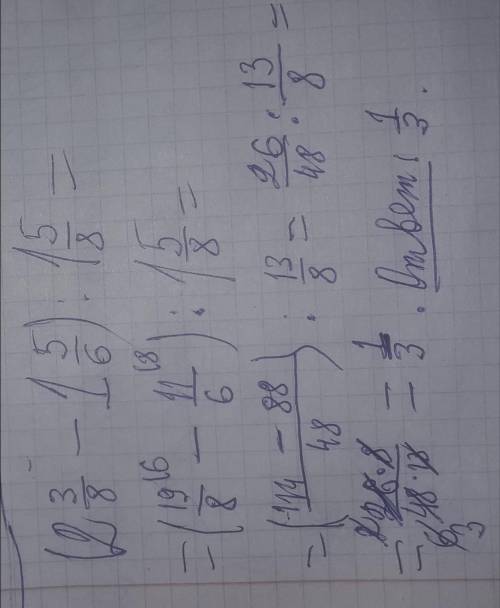 (2 3/8 − 1 5/6) : 1 5/8 =
= (19/8 ⁽⁶ − 11/6 ⁽⁸) : 1 5/8 =
= (114 − 88)/48) : 13/8 = 26/48 : 13/8 =
= 26·8/48·13 = 1/3. Ответ: 1/3.